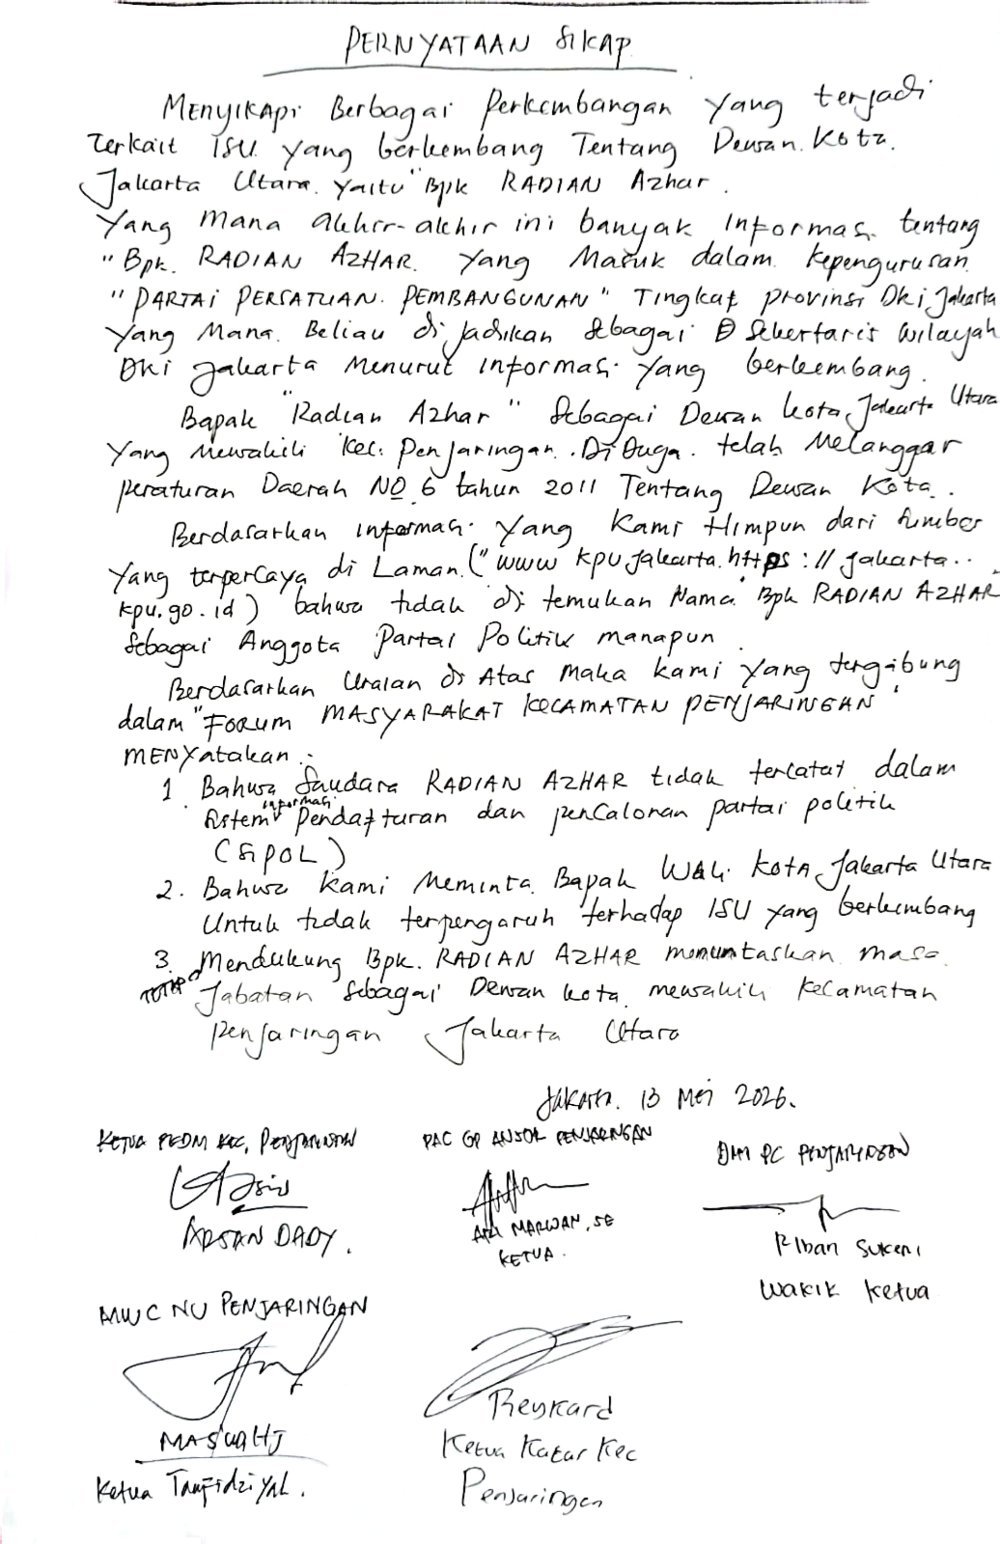 PERNYATAAN SIKAP
MENYIKAPI Berbagai Perkembangan Yang terjadi
Terkait ISU yang berkembang Tentang Dewan Kota
Jakarta Utara yaitu "Bpk RADIAN Azhar.
Yang Mana akhir-akhir ini banyak Informasi tentang
"Bpk. RADIAN AZHAR yang Masuk dalam kepengurusan
"PARTAI PERSATUAN PEMBANGUNAN" Tingkat provinsi Dki Jakarta
Yang Mana Beliau di jadikan Sebagai Sekertaris Wilayah
DKI Jakarta Menurut informasi yang berkembang.
Bapak "Radian Azhar" Sebagai Dewan kota Jakarta Utara
Yang Mewakili Kec. Penjaringan. Di Duga telah Melanggar
peraturan Daerah NO 6 tahun 2011 Tentang Dewan Kota.
Berdasarkan informasi yang Kami Himpun dari Sumber
Yang terpercaya di Laman ("www kpu jakarta.https://jakarta..
kpu.go.id) bahwa tidak di temukan Nama Bpk RADIAN AZHAR
Sebagai Anggota Partai Politik manapun
Berdasarkan Uraian di Atas Maka kami yang tergabung
dalam "FORUM MASYARAKAT KECAMATAN PENJARINGAN"
MENYatakan :
1 Bahwa Saudara RADIAN AZHAR tidak tercatat dalam
Sistem informasi Pendafturan dan pencalonan partai politik
(SIPOL)
2. Bahwa kami Meminta Bapak Wali Kota Jakarta Utara
Untuk tidak terpengaruh terhadap ISU yang berkembang
3. Mendukung Bpk. RADIAN AZHAR menuntaskan masa
TETAP Jabatan Sebagai Dewan kota mewakili kecamatan
penjaringan Jakarta Utara
Jakarta. 13 Mei 2026.
KETUA PEDM KEC, PENJARINGAN
PAC GP ANSOR PENJARINGAN
PC PENJARINGAN
ARSAN DADY.
ARI MARWAN, SE
KETUA.
Riban Sukeri
Wakil Ketua
MWC NU PENJARINGAN
MASWAHJ
Ketua Tanfidziyah.
Reykard
Ketua Katar Kec
Penjaringan